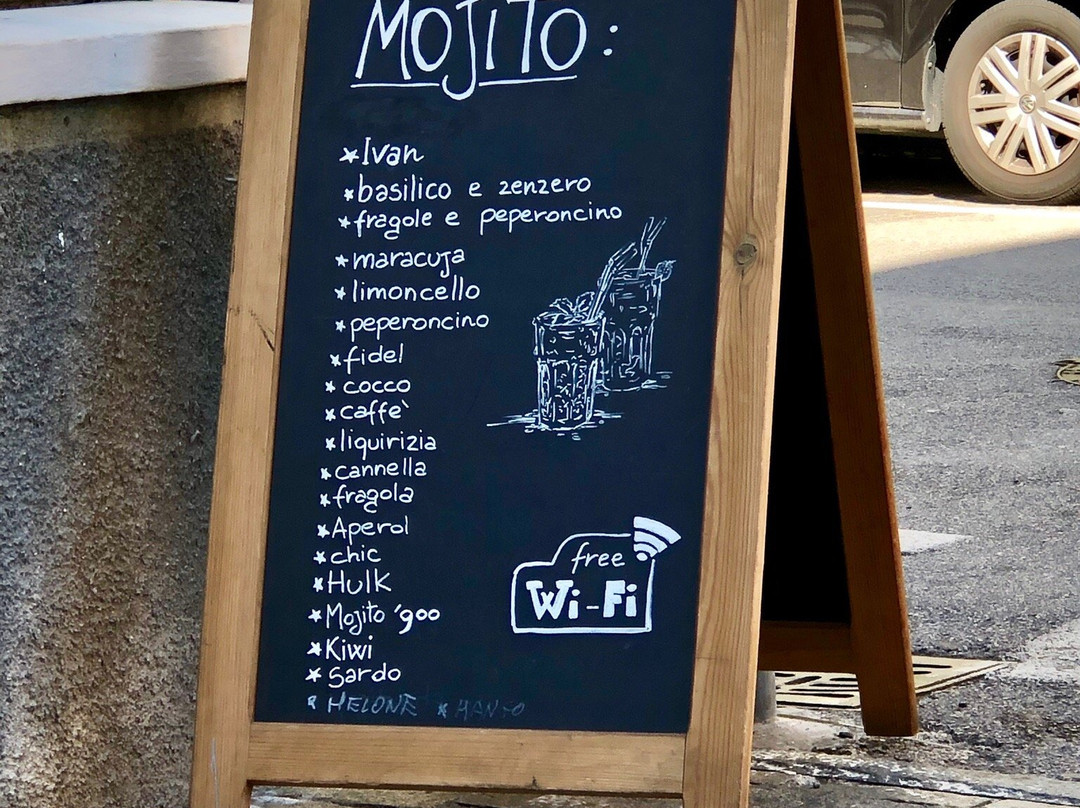 MOJITO:
*Ivan
*basilico e zenzero
*fragole e peperoncino
*maracuja
*limoncello
*peperoncino
*fidel
*cocco
*caffè
*liquirizia
*cannella
*fragola
*Aperol
*chic
*Hulk
*Mojito '900
*Kiwi
*Sardo
*MELONE *MANGO
free
Wi-Fi